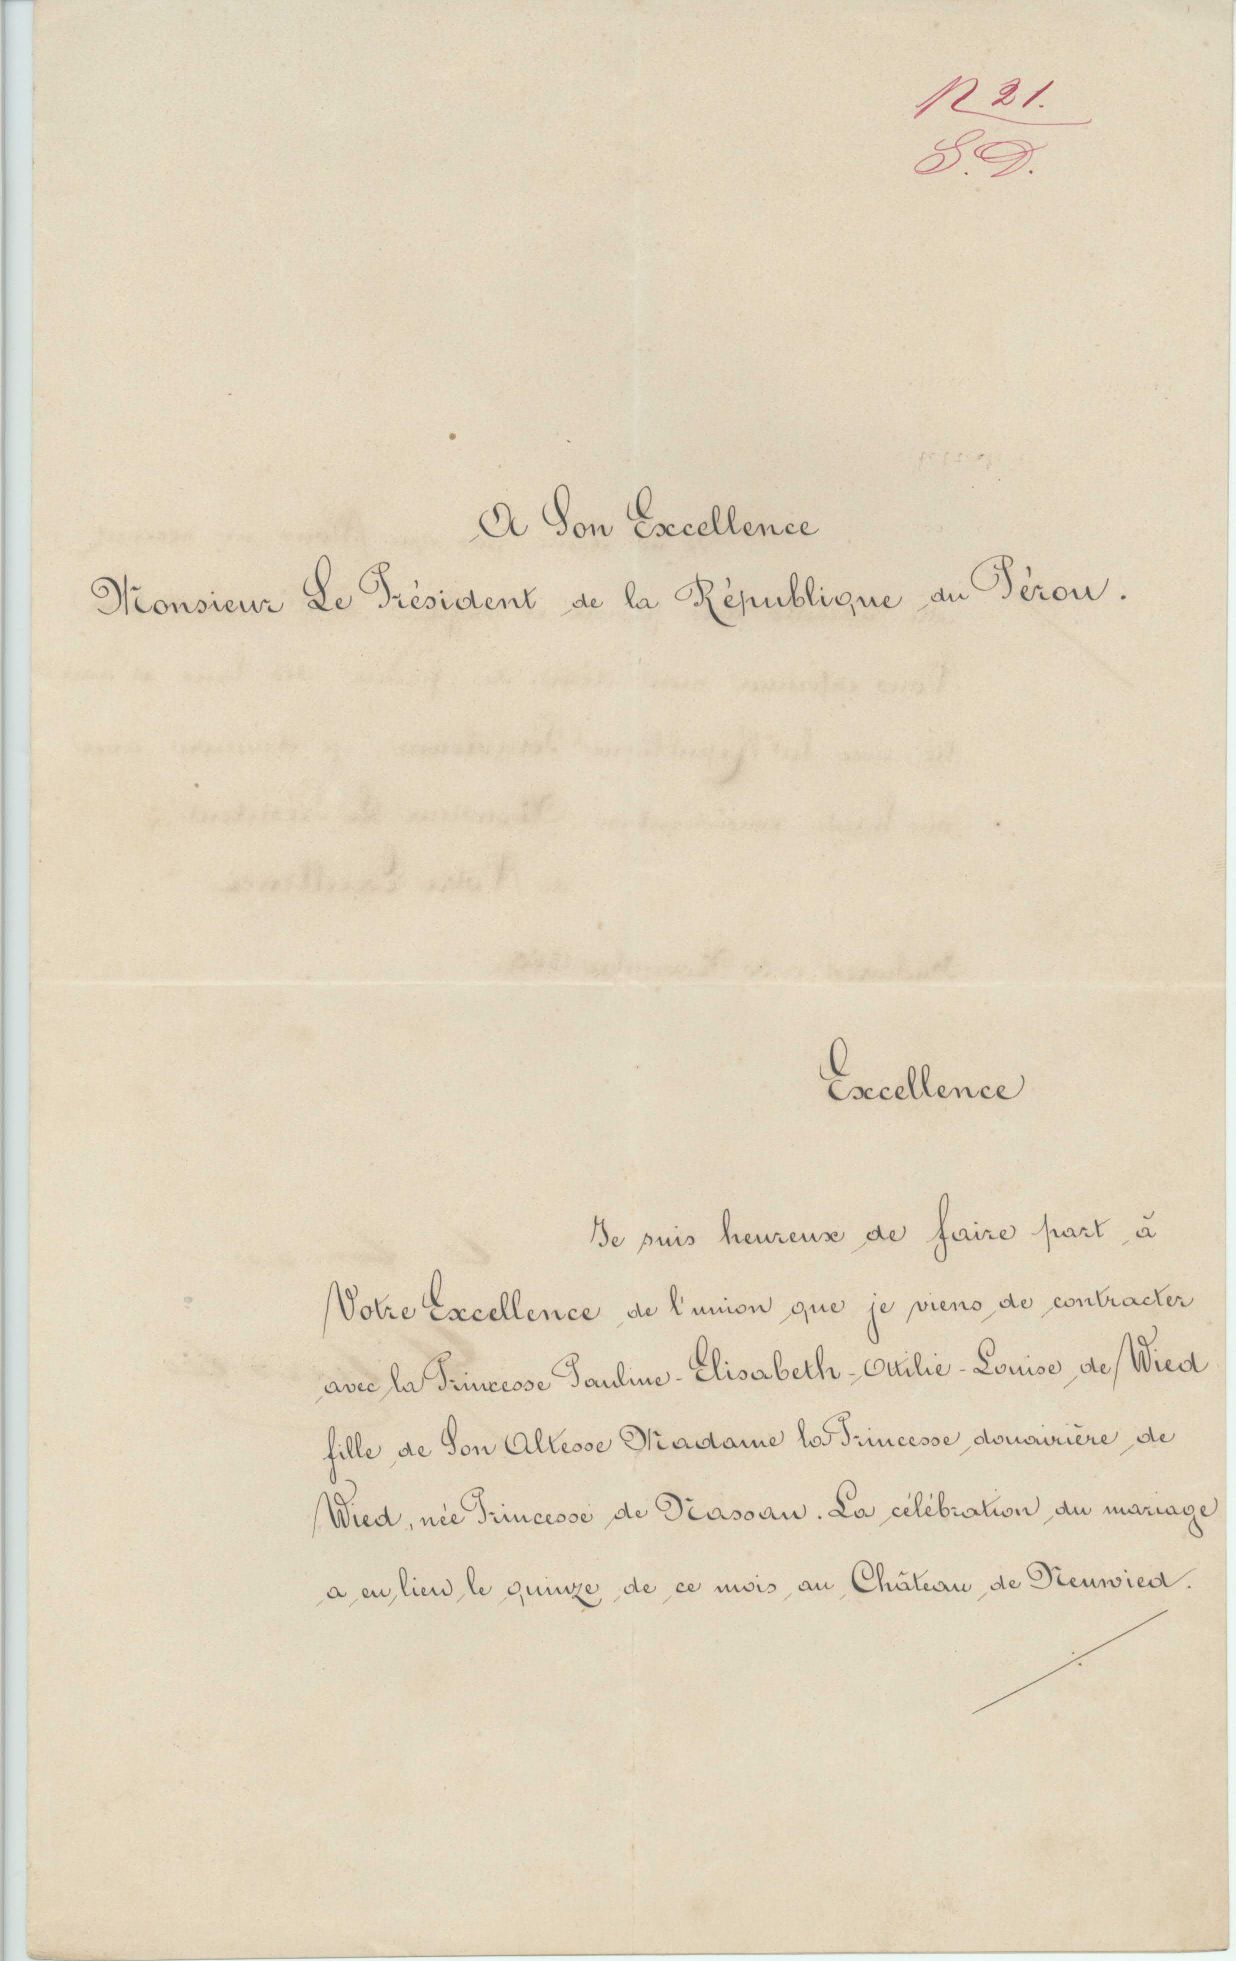 N 21.
S. D.
A Son Excellence
Monsieur Le Président de la République du Pérou.
Excellence
Je suis heureux de faire part à
Votre Excellence de l'union que je viens de contracter
avec la Princesse Pauline-Elisabeth-Ottilie-Louise de Wied
fille de Son Altesse Madame la Princesse douairière de
Wied, née Princesse de Nassau. La célébration du mariage
a eu lieu le quinze de ce mois au Château de Neuwied.